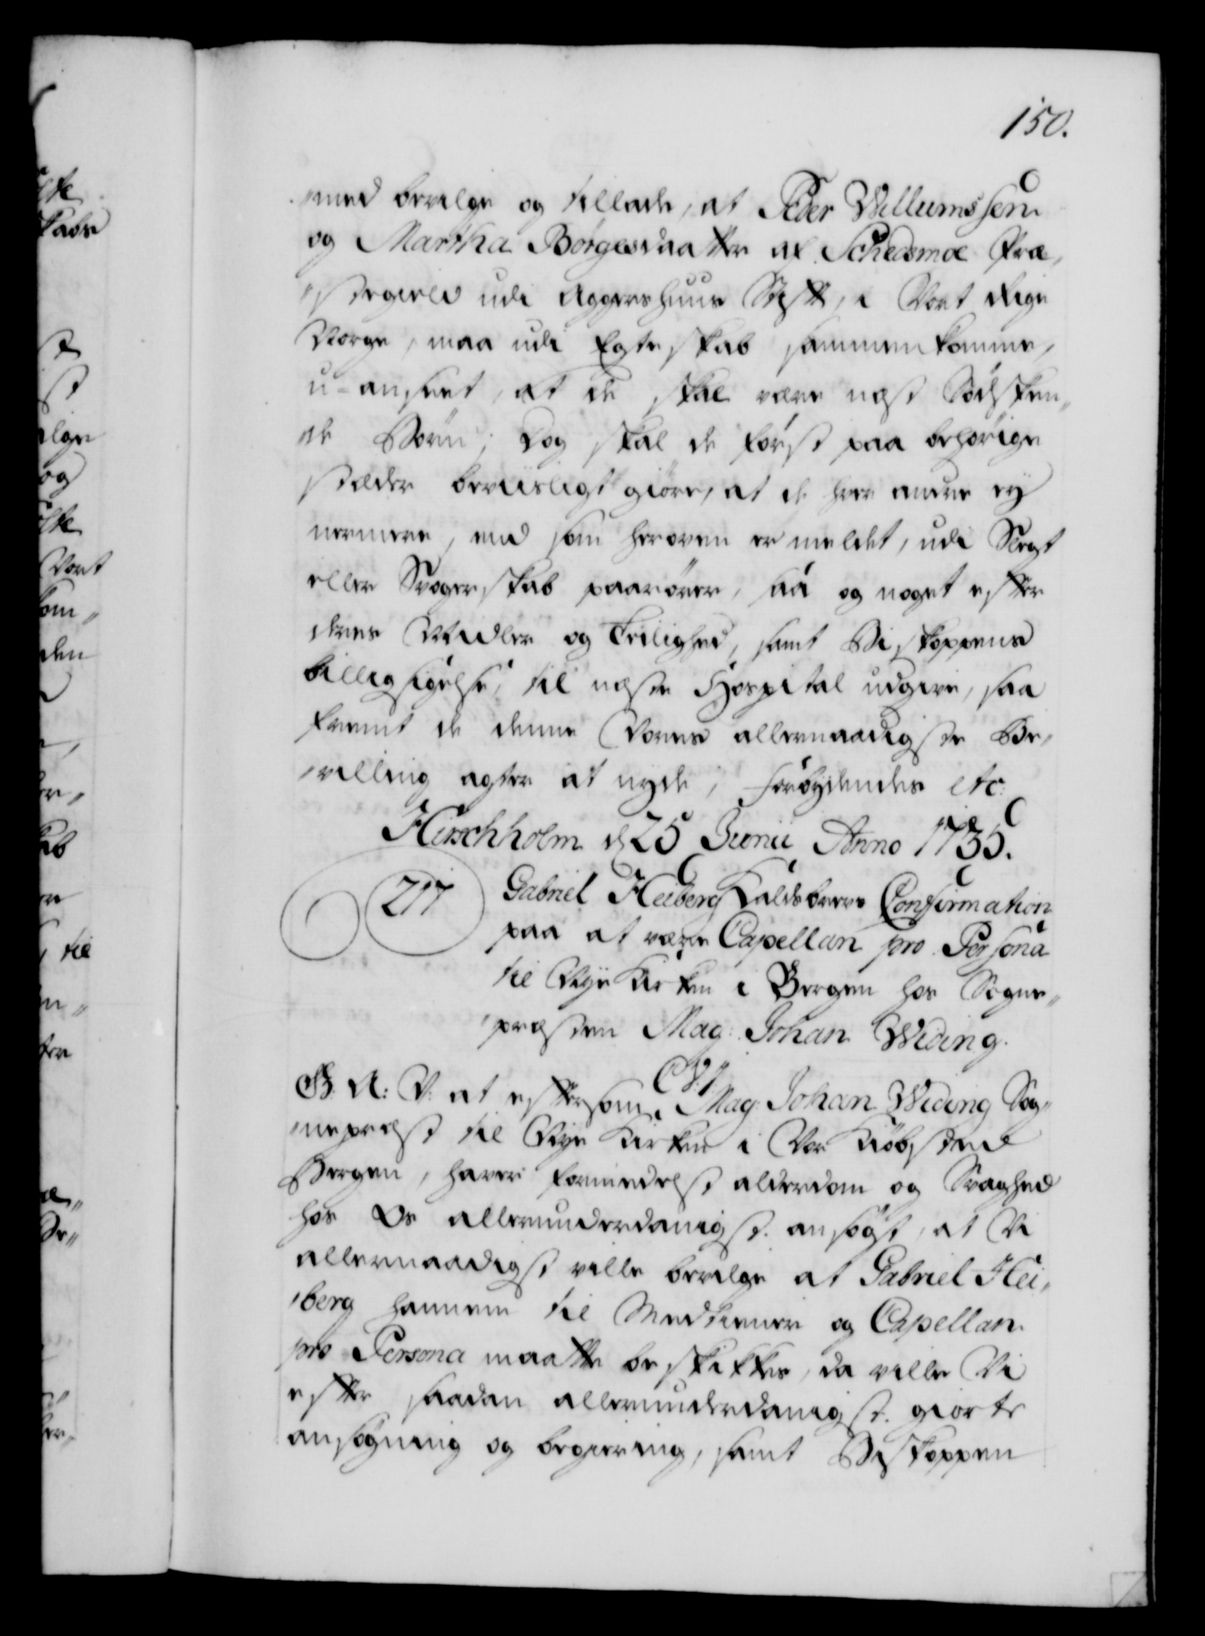 150.
med bevilge og tillade, at Peder Willumssøn
og Martha Børgesdaatter af Schedsmoe Præ„
„stegield udi Aggershuus Stift, i Vort Rige
Norge, maa udi Egteskab sammenkomme,
u-anseet, at de skal være næst Sødsken„
de Børn; Dog skal de først paa behørige
stæder beviisligt giøre, at de hver andre ey
nermere, end som heroven er meldet, udi Slegt
eller Svogerskab paarører, saa og noget efter
deres Midler og Leilighed, samt Biskoppens
billigsigelse, til næste Hospital udgive, saa
fremt de denne Vores allernaadigste Be„
„villing agter at nyde; Forbydendes etc:
Hirschholm d. 25 Junii Anno 1735.
217
Gabriel Heiberg Kaldsbrevs Confirmation
paa at være Capellan pro Persona
til Nye Kirken i Bergen hos Sogne„
præsten Mag: Johan Widing.
G. A: V: at eftersom Mag: Johan Widing Sog„
„nepræst til Nye Kirken i Vor Kiøbsted
Bergen, haver formedelst alderdom og Svaghed
hos Os allerunderdanigst ansøgt, at Vi
allernaadigst ville bevilge at Gabriel Hei„
„berg hannem til Medtiener og Capellan
pro Persona maatte beskikkes, da ville Vi
efter saadan allerunderdanigst giorte
ansøgning og begiering, samt Biskoppen